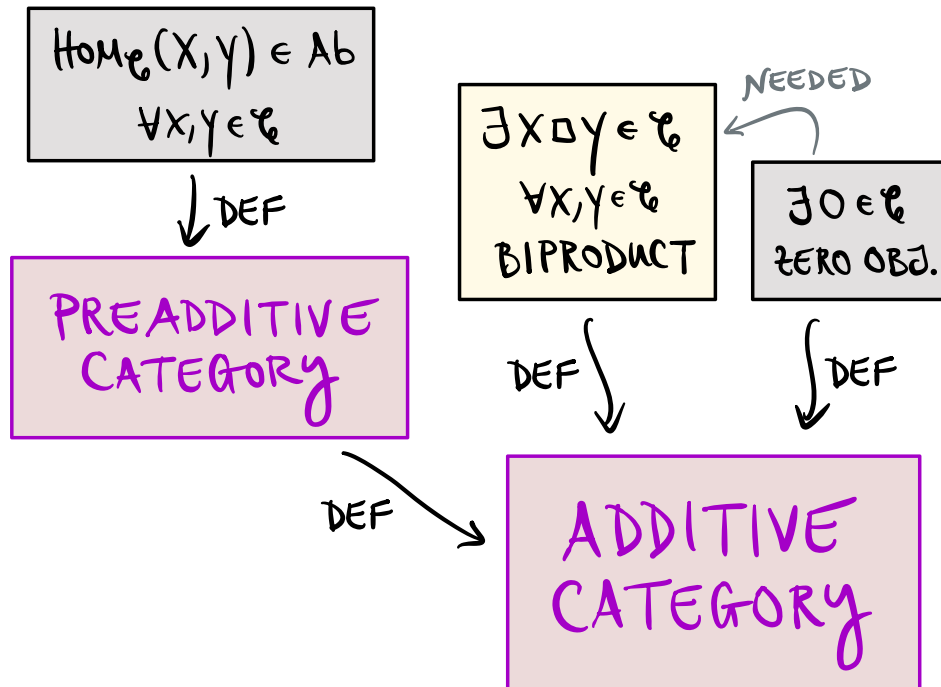 Hom𝒞(X,Y) ∈ Ab
∀X,Y ∈ 𝒞
DEF
PREADDITIVE
CATEGORY
NEEDED
∃ X □ Y ∈ 𝒞
∀X,Y ∈ 𝒞
BIPRODUCT
∃ O ∈ 𝒞
ZERO OBJ.
DEF
DEF
DEF
ADDITIVE
CATEGORY